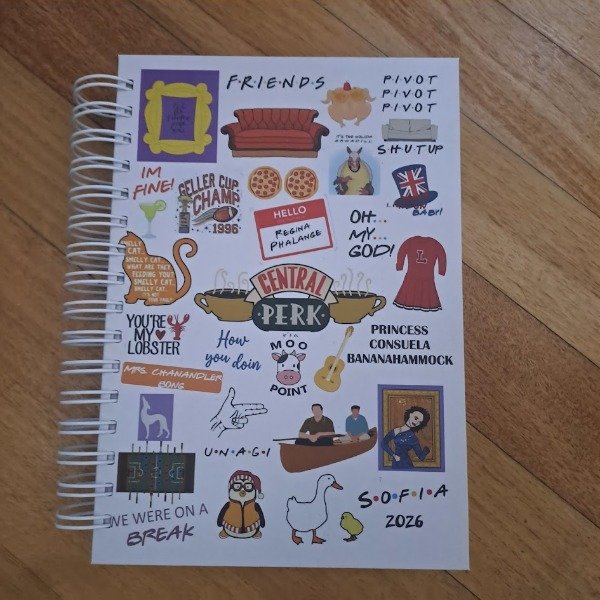 F·R·I·E·N·D·S
P·I·V·O·T
P·I·V·O·T
P·I·V·O·T
S·H·U·T U·P
I'M
FINE!
GELLER CUP
CHAMP
1996
HELLO
REGINA
PHALANGE
OH...
MY...
GOD!
BABY!
SMELLY
CAT..
SMELLY CAT..
WHAT ARE THEY
FEEDING YOU?
SMELLY CAT..
SMELLY CAT..
L
CENTRAL
PERK
YOU'RE
MY
LOBSTER
How
you doin
MOO
POINT
PRINCESS
CONSUELA
BANANAHAMMOCK
MRS. CHANANDLER
BONG
U·N·A·G·I
WE WERE ON A
BREAK
S·O·F·I·A
2026